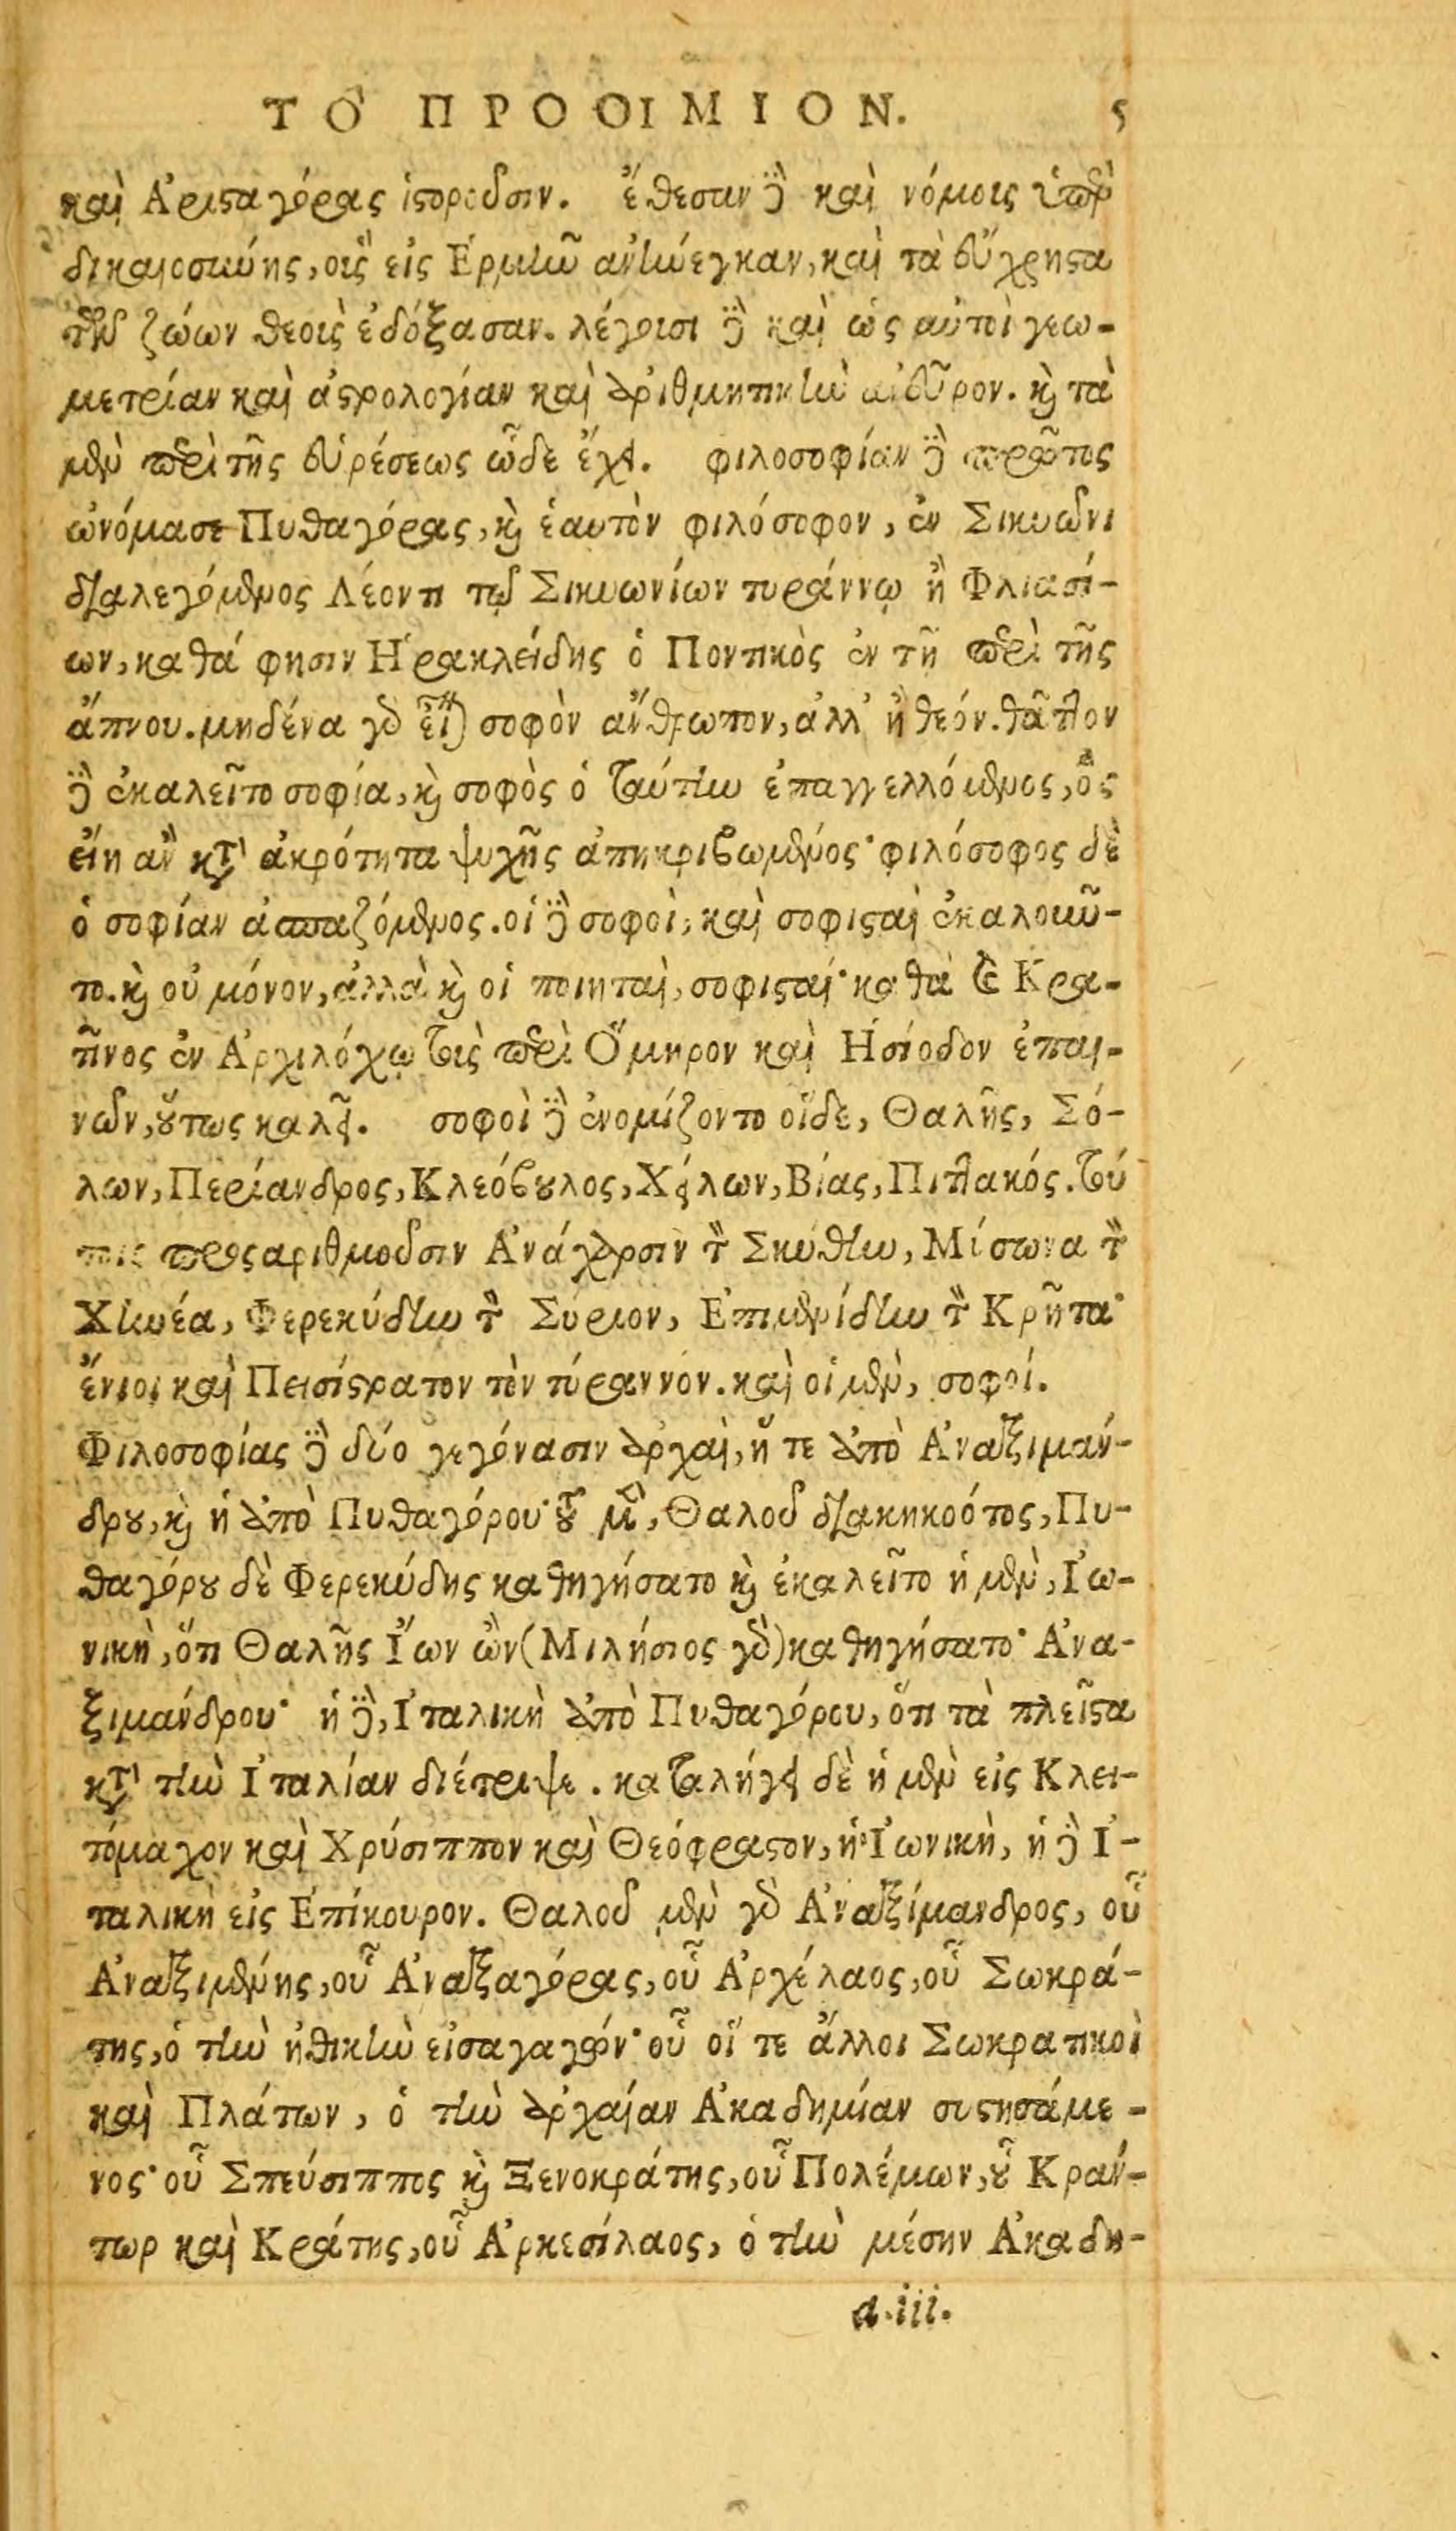 ΤΟ ΠΡΟΟΙΜΙΟΝ. 5
καὶ Ἀρισταγόρας ἱστοροῦσιν. ἔθεσαν δὲ καὶ νόμοις ὑπὲρ
δικαιοσύνης, οἷς εἰς Ἑρμῆν ἀνήνεγκαν, καὶ τὰ εὔχρηστα
τῶν ζώων θεοὺς ἐδόξασαν. λέγουσι δὲ καὶ ὡς αὐτοὶ γεω-
μετρίαν καὶ ἀστρολογίαν καὶ ἀριθμητικὴν ἀνεῦρον. καὶ τὰ
μὲν περὶ τῆς εὑρέσεως ὧδε ἔχει. φιλοσοφίαν δὲ πρῶτος
ὠνόμασε Πυθαγόρας, καὶ ἑαυτὸν φιλόσοφον, ἐν Σικυῶνι
διαλεγόμενος Λέοντι τῷ Σικυωνίων τυράννῳ ἢ Φλιασί-
ων, καθά φησιν Ἡρακλείδης ὁ Ποντικὸς ἐν τῇ περὶ τῆς
ἄπνου. μηδένα γὰρ εἶναι σοφὸν ἄνθρωπον, ἀλλ' ἢ θεόν. θᾶττον
δὲ ἐκαλεῖτο σοφία, καὶ σοφὸς ὁ ταύτην ἐπαγγελλόμενος, ὃς
εἴη ἂν κατ' ἀκρότητα ψυχῆς ἀπηκριβωμένος· φιλόσοφος δὲ
ὁ σοφίαν ἀσπαζόμενος. οἱ δὲ σοφοὶ, καὶ σοφισταὶ ἐκαλοῦν-
το. καὶ οὐ μόνον, ἀλλὰ καὶ οἱ ποιηταὶ, σοφισταί· καθὰ καὶ Κρα-
τῖνος ἐν Ἀρχιλόχῳ τοὺς περὶ Ὅμηρον καὶ Ἡσίοδον ἐπαι-
νῶν, οὕτως καλεῖ. σοφοὶ δὲ ἐνομίζοντο οἵδε, Θαλῆς, Σό-
λων, Περίανδρος, Κλεόβουλος, Χείλων, Βίας, Πιττακός. τού
τοις προσαριθμοῦσιν Ἀνάχαρσιν τὸν Σκύθην, Μίσωνα τὸν
Χηνέα, Φερεκύδην τὸν Σύριον, Ἐπιμενίδην τὸν Κρῆτα·
ἔνιοι καὶ Πεισίστρατον τὸν τύραννόν. καὶ οἱ μὲν, σοφοί.
Φιλοσοφίας δὲ δύο γεγόνασιν ἀρχαὶ, ἥ τε ἀπὸ Ἀναξιμάν-
δρου, καὶ ἡ ἀπὸ Πυθαγόρου· τοῦ μὲν, Θαλοῦ διακηκοότος, Πυ-
θαγόρου δὲ Φερεκύδης καθηγήσατο καὶ ἐκαλεῖτο ἡ μὲν, Ἰω-
νικὴ, ὅτι Θαλῆς Ἴων ὢν (Μιλήσιος γὰρ) καθηγήσατο· Ἀνα-
ξιμάνδρου· ἡ δὲ, Ἰταλικὴ ἀπὸ Πυθαγόρου, ὅτι τὰ πλεῖστα
κατὰ τὴν Ἰταλίαν διέτριψε. καταλήγει δὲ ἡ μὲν εἰς Κλει-
τόμαχον καὶ Χρύσιππον καὶ Θεόφραστον, ἡ Ἰωνικὴ, ἡ δὲ Ἰ-
ταλικὴ εἰς Ἐπίκουρον. Θαλοῦ μὲν γὰρ Ἀναξίμανδρος, οὗ
Ἀναξιμένης, οὗ Ἀναξαγόρας, οὗ Ἀρχέλαος, οὗ Σωκρά-
της, ὁ τὴν ἠθικὴν εἰσαγαγών· οὗ οἵ τε ἄλλοι Σωκρατικοὶ
καὶ Πλάτων, ὁ τὴν ἀρχαίαν Ἀκαδημίαν συστησάμε-
νος· οὗ Σπεύσιππος καὶ Ξενοκράτης, οὗ Πολέμων, οὗ Κράν-
τωρ καὶ Κράτης, οὗ Ἀρκεσίλαος, ὁ τὴν μέσην Ἀκαδη-
a.iii.